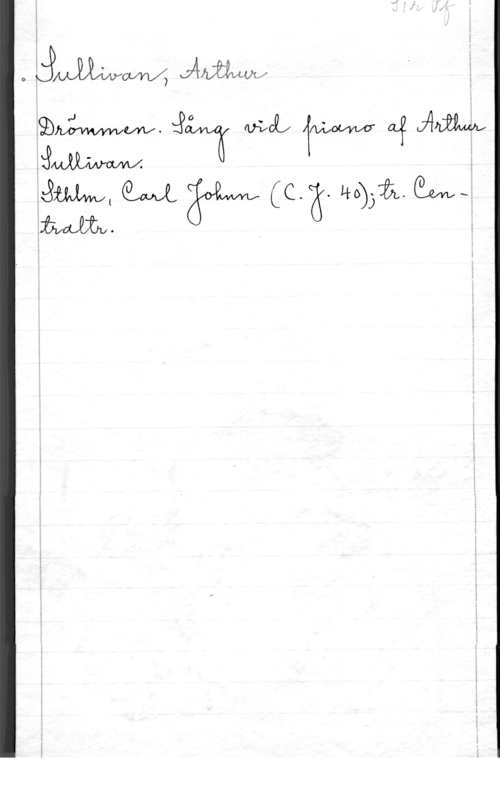 Sullivan, Arthur
Drömmen. Sång vid piano af Arthur
Sullivan.
Sthlm, Carl Johnn (C. J. 40); tr. Cen-
traltr.